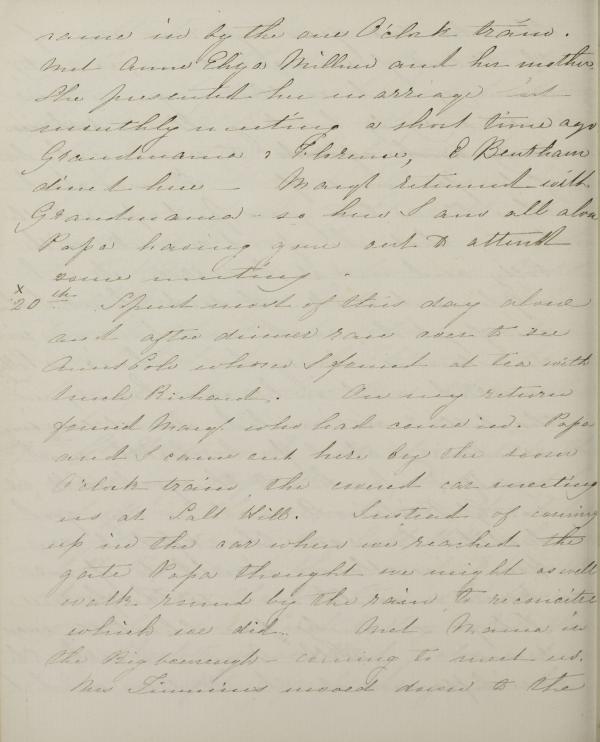 came in by the one O'clok train.
Met Anne Eliza Millner and her mother
She presented her marriage at
monthly meeting a short time ago
Grandmama & Florence, E Bentham
dined here - Margt returned with
Grandmama - so here I am all alone
Papa having gone out to attend
some meeting.
x
20th Spent most of this day alone
and after dinner ran over to see
Aunt Pole whom I found at tea with
Uncle Richard. On my return
found Margt who had come in. Papa
and I came out here by the seven
O'clok train the covered car meeting
us at Salt Hill. Instead of coming
up in the car when we reached the
gate Papa thought we might as well
walk round by the to reconoitre
which we did. Met Mama in
the - coming to meet us.
Mrs Timmins moved down to the